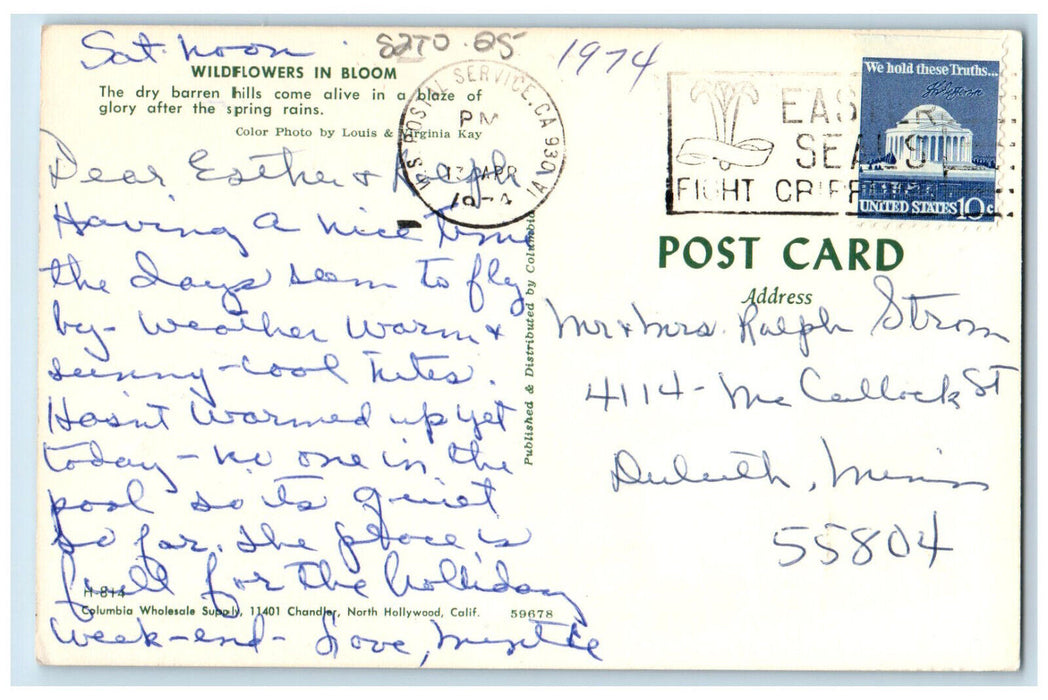 Sat. noon
S2TO 25
1974
WILDFLOWERS IN BLOOM
The dry barren hills come alive in a blaze of
glory after the spring rains.
Color Photo by Louis & Virginia Kay
Dear Esther & Ralph
Having a nice time
the days seem to fly
by - weather warm &
sunny - cool nites.
Hasn't warmed up yet
today - no one in the
pool so its quiet
so far. The place is
full for the holliday
week-end - Love, Myrtle
H-814
Columbia Wholesale Supply, 11401 Chandler, North Hollywood, Calif. 59678
Published & Distributed by Columbia
U.S. POSTAL SERVICE, CA 930
PM
13 APR
1974
EASTER
SEALS
FIGHT
We hold these Truths...
UNITED STATES 10c
POST CARD
Address
Mr & Mrs. Ralph Strom
4114 - Mc Cullock St
Duluth, Minn
55804